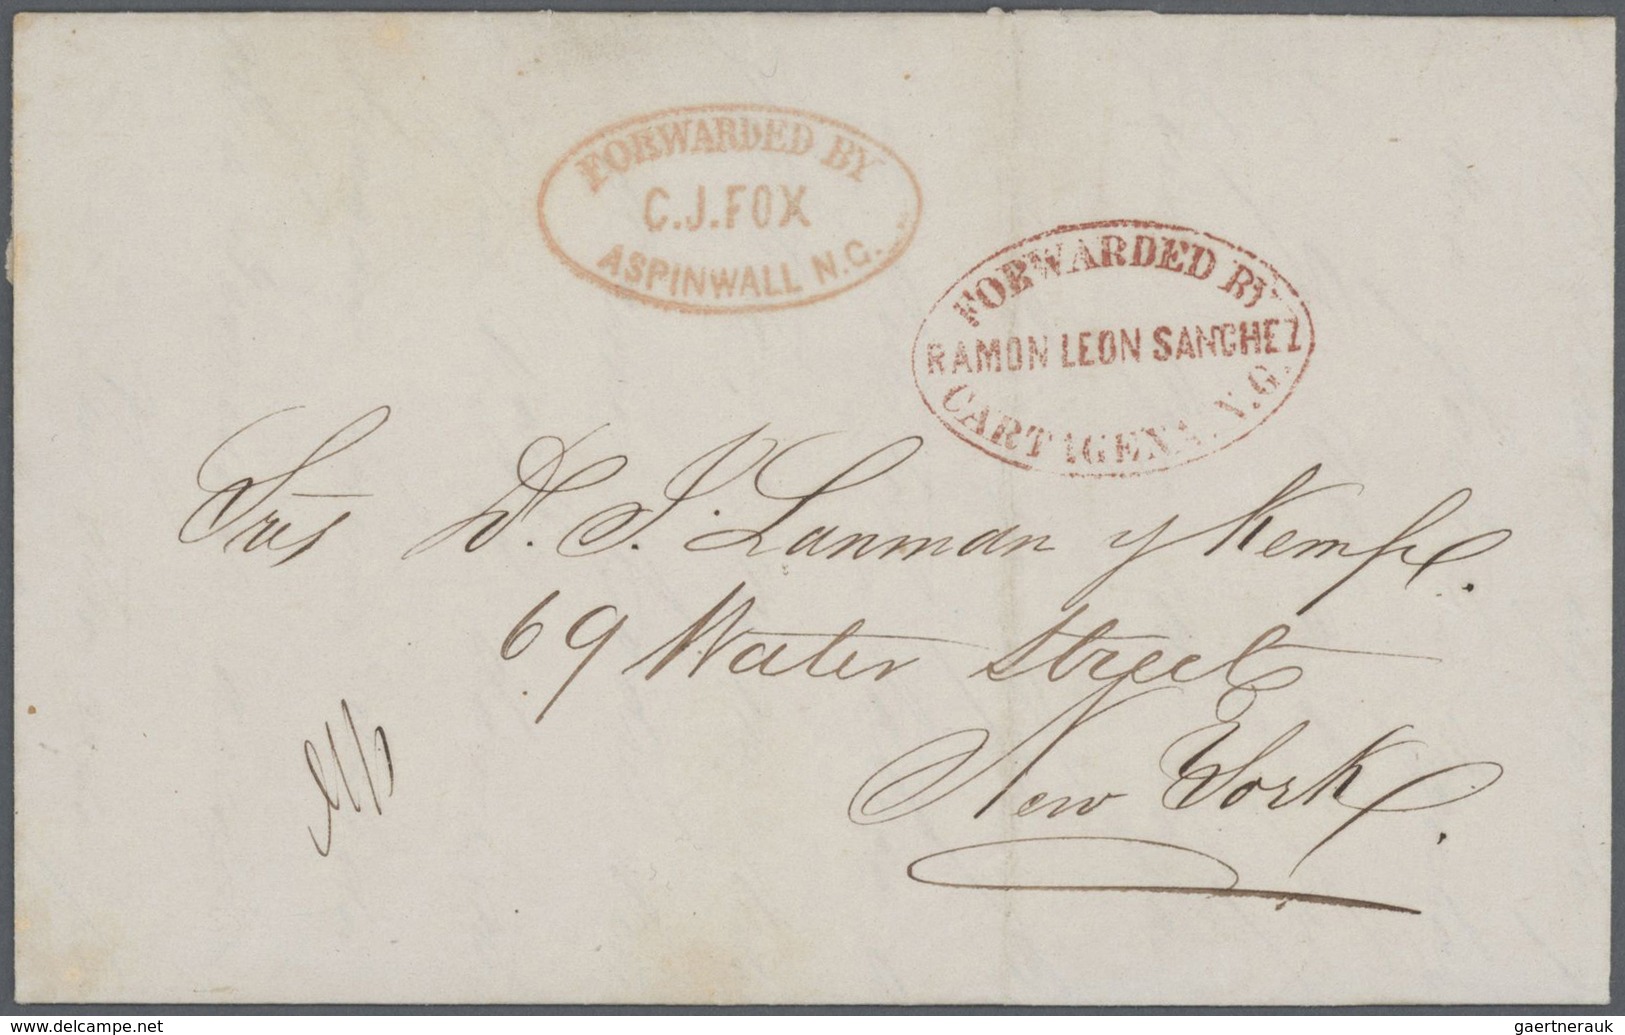 FORWARDED BY
C.J.FOX
ASPINWALL N.G.
FORWARDED BY
RAMON LEON SANCHEZ
CARTAGENA. N.G.
Sres D. J. Lanman y Kemp.
69 Water Street
New York.
www.delcampe.net
gaertnerauk